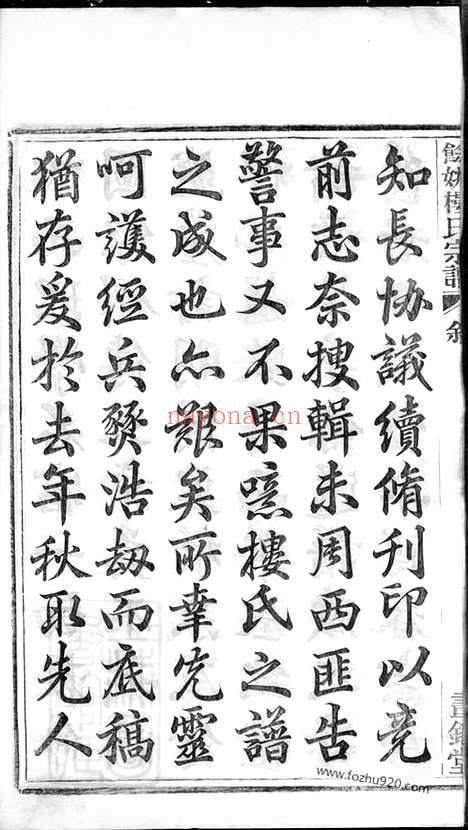 餘姚樓氏宗譜 敘
畫錦堂
知長協議續脩刊印以竟
前志奈搜輯未周西匪告
警事又不果噫樓氏之譜
之成也亦艱矣所幸先靈
呵護經兵燹浩劫而底稿
猶存爰於去年秋取先人
nayona.cn
www.fozhu920.com